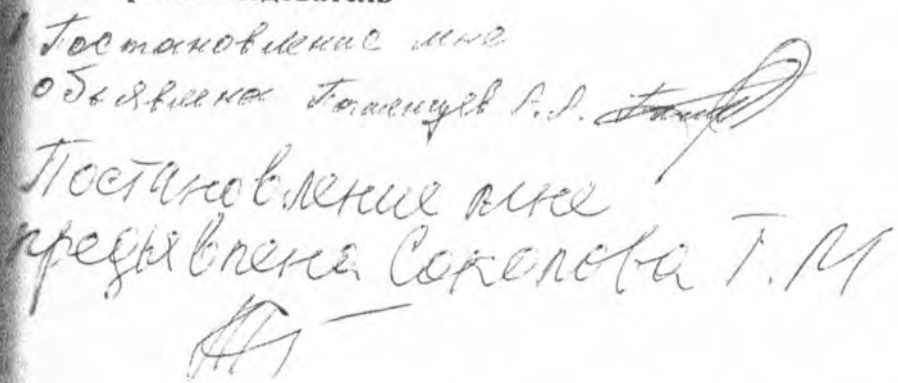 Постановление мне
объявлено А.А.
Постановление мне
предъявлена Соколова Т. М